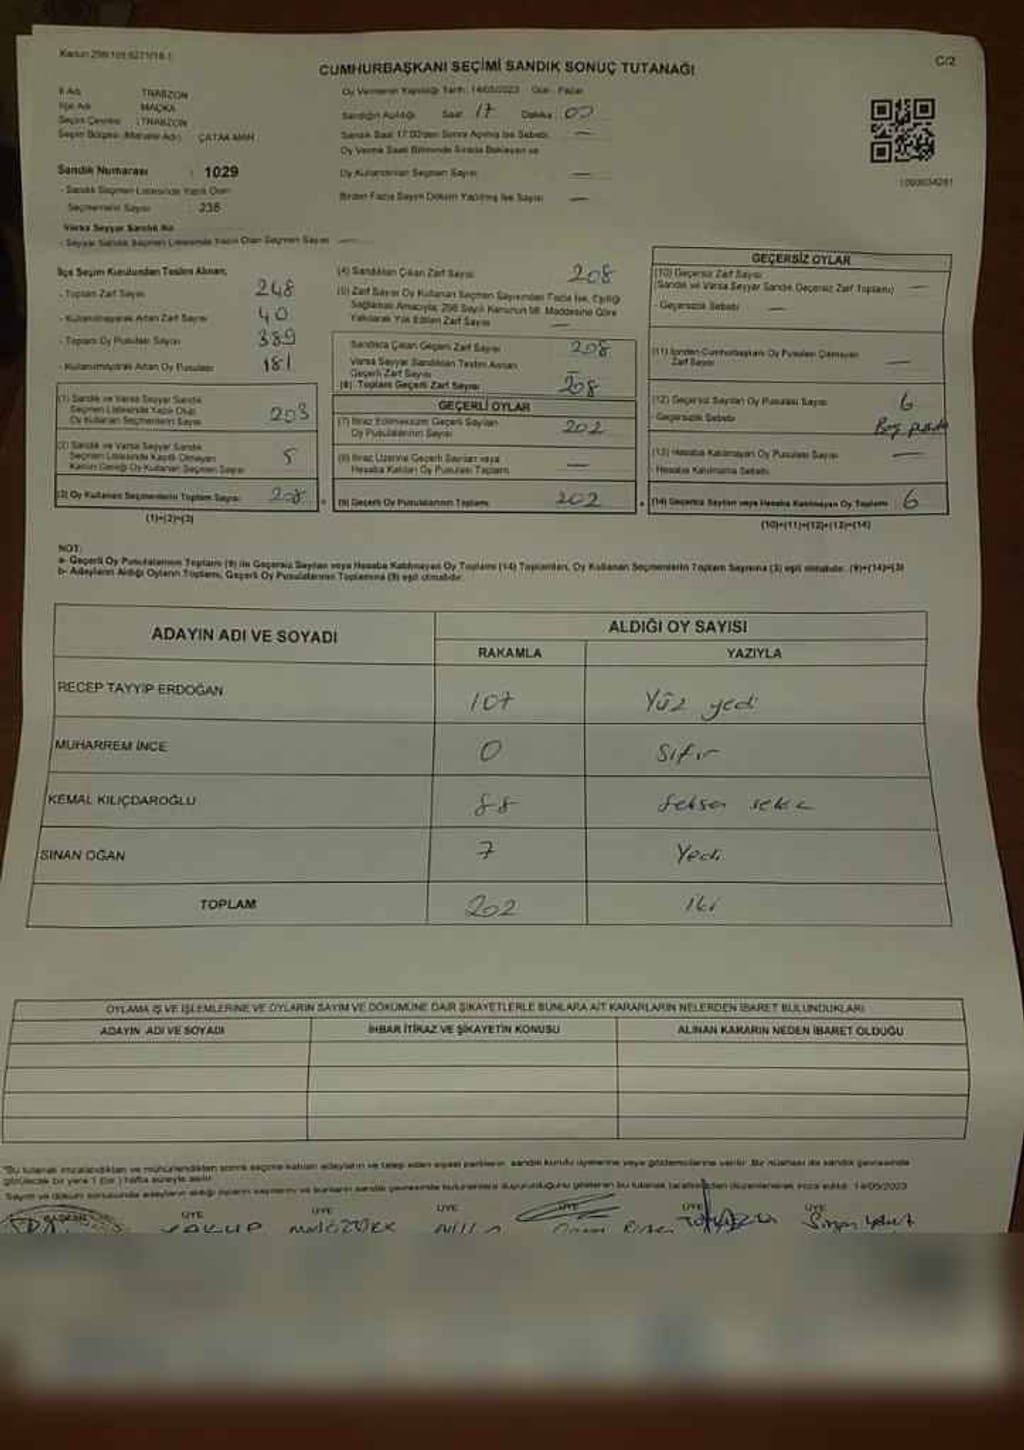 CUMHURBAŞKANI SEÇİMİ SANDIK SONUÇ TUTANAĞI
C/2
İl Adı TRABZON
İlçe Adı MAÇKA
Seçim Çevresi : TRABZON
Seçim Bölgesi (Mahalle Adı) ÇATAK MAH
Sandık Numarası : 1029
- Sandık Seçmen Listesinde Yazılı Olan
Seçmenlerin Sayısı : 238
Varsa Seyyar Sandık No
- Seyyar Sandık Seçmen Listesinde Yazılı Olan Seçmen Sayısı —
Oy Vermenin Yapıldığı Tarih: 14/05/2023 Gün: Pazar
Sandığın Açıldığı Saat: 17 Dakika: 00
Sandık Saat 17:00'den Sonra Açılmış İse Sebebi: —
Oy Verme Saati Bitiminde Sırada Bekleyen ve
Oy Kullandırılan Seçmen Sayısı —
Birden Fazla Sayım Döküm Yapılmış İse Sayısı —
İlçe Seçim Kurulundan Teslim Alınan;
- Toplam Zarf Sayısı 248
- Kullanılmayarak Artan Zarf Sayısı 40
- Toplam Oy Pusulası Sayısı 389
- Kullanılmayarak Artan Oy Pusulası 181
(1) Sandık ve Varsa Seyyar Sandık
Seçmen Listesinde Yazılı Olup
Oy Kullanan Seçmenlerin Sayısı 203
(2) Sandık ve Varsa Seyyar Sandık
Seçmen Listesinde Kayıtlı Olmayan
Kanun Gereği Oy Kullanan Seçmen Sayısı 5
(3) Oy Kullanan Seçmenlerin Toplam Sayısı 208
(1)+(2)=(3)
(4) Sandıktan Çıkan Zarf Sayısı 208
(5) Zarf Sayısı Oy Kullanan Seçmen Sayısından Fazla İse, Eşitliği
Sağlamak Amacıyla, 298 Sayılı Kanunun 98. Maddesine Göre
Yakılarak Yok Edilen Zarf Sayısı —
Sandıkta Çıkan Geçerli Zarf Sayısı 208
Varsa Seyyar Sandıktan Teslim Alınan
Geçerli Zarf Sayısı —
(6) Toplam Geçerli Zarf Sayısı 208
GEÇERLİ OYLAR
(7) İtiraz Edilmeksizin Geçerli Sayılan
Oy Pusulalarının Sayısı 202
(8) İtiraz Üzerine Geçerli Sayılan veya
Hesaba Katılan Oy Pusulası Toplamı —
(9) Geçerli Oy Pusulalarının Toplamı 202
GEÇERSİZ OYLAR
(10) Geçersiz Zarf Sayısı
(Sandık ve Varsa Seyyar Sandık Geçersiz Zarf Toplamı) —
- Geçersizlik Sebebi —
(11) İçinden Cumhurbaşkanı Oy Pusulası Çıkmayan
Zarf Sayısı —
(12) Geçersiz Sayılan Oy Pusulası Sayısı 6
- Geçersizlik Sebebi Boş pusula
(13) Hesaba Katılmayan Oy Pusulası Sayısı —
- Hesaba Katılmama Sebebi
(14) Geçersiz Sayılan veya Hesaba Katılmayan Oy Toplamı 6
(10)+(11)+(12)+(13)=(14)
NOT:
a- Geçerli Oy Pusulalarının Toplamı (9) ile Geçersiz Sayılan veya Hesaba Katılmayan Oy Toplamı (14) Toplamları, Oy Kullanan Seçmenlerin Toplam Sayısına (3) eşit olmalıdır. (9)+(14)=(3)
b- Adayların Aldığı Oyların Toplamı, Geçerli Oy Pusulalarının Toplamına (9) eşit olmalıdır.
ADAYIN ADI VE SOYADI ALDIĞI OY SAYISI
RAKAMLA YAZIYLA
RECEP TAYYİP ERDOĞAN 107 Yüz yedi
MUHARREM İNCE 0 Sıfır
KEMAL KILIÇDAROĞLU 88 Seksen sekiz
SİNAN OĞAN 7 Yedi
TOPLAM 202 iki
OYLAMA İŞ VE İŞLEMLERİNE VE OYLARIN SAYIM VE DÖKÜMÜNE DAİR ŞİKAYETLERLE BUNLARA AİT KARARLARIN NELERDEN İBARET BULUNDUKLARI
ADAYIN ADI VE SOYADI İHBAR İTİRAZ VE ŞİKAYETİN KONUSU ALINAN KARARIN NEDEN İBARET OLDUĞU
*Bu tutanak imzalandıktan ve mühürlendikten sonra seçime katılan adayların ve talep eden siyasi partilerin sandık kurulu üyelerine veya gözlemcilerine verilir. Bir nüshası da sandık çevresinde
görülecek bir yere 1 (bir) hafta süreyle asılır.
Sayım ve döküm sonucunda adayların aldığı oyların sayılarını ve bunların sandık çevresinde bulunanlara duyurulduğunu gösteren bu tutanak tarafımızdan düzenlenerek imza edildi. 14/05/2023
ÜYE ÜYE ÜYE ÜYE ÜYE ÜYE
YAKUP